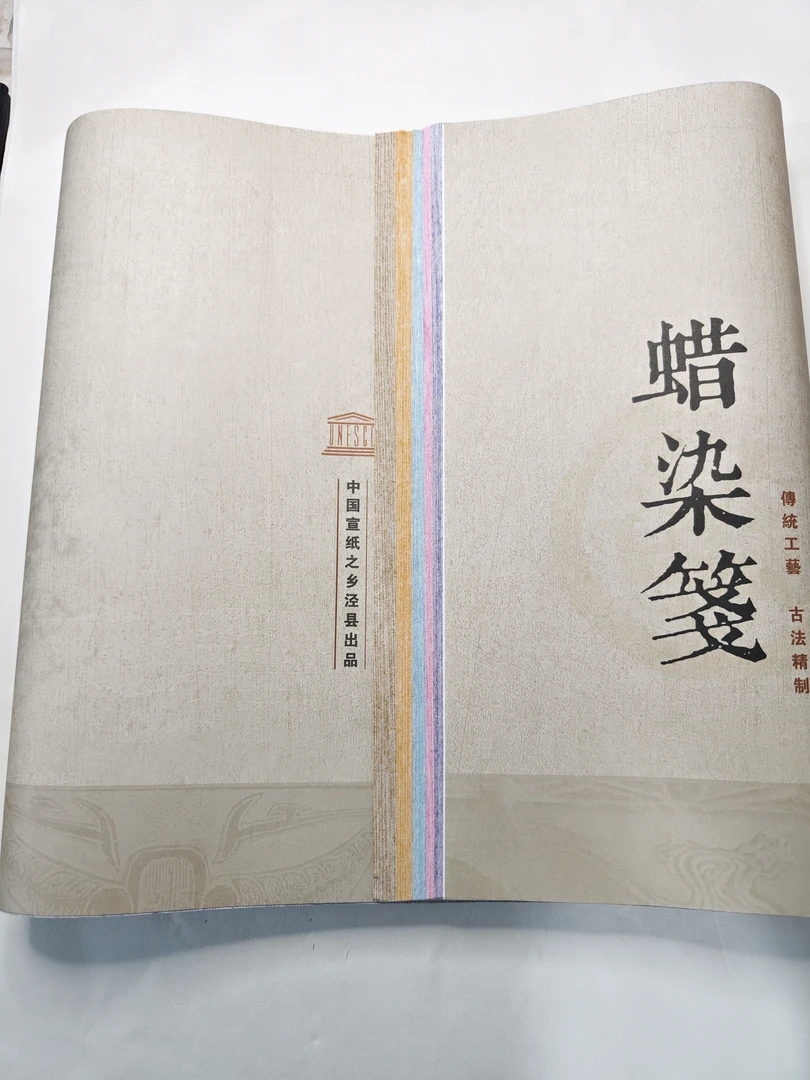 蜡染笺
傳統工藝 古法精制
UNESC
中国宣纸之乡泾县出品